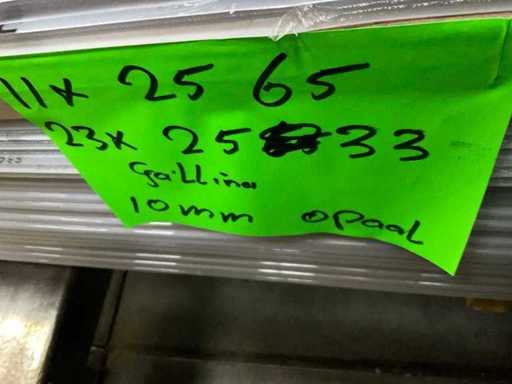 11x 25 65
23x 25 33
Gallina
10mm opaal